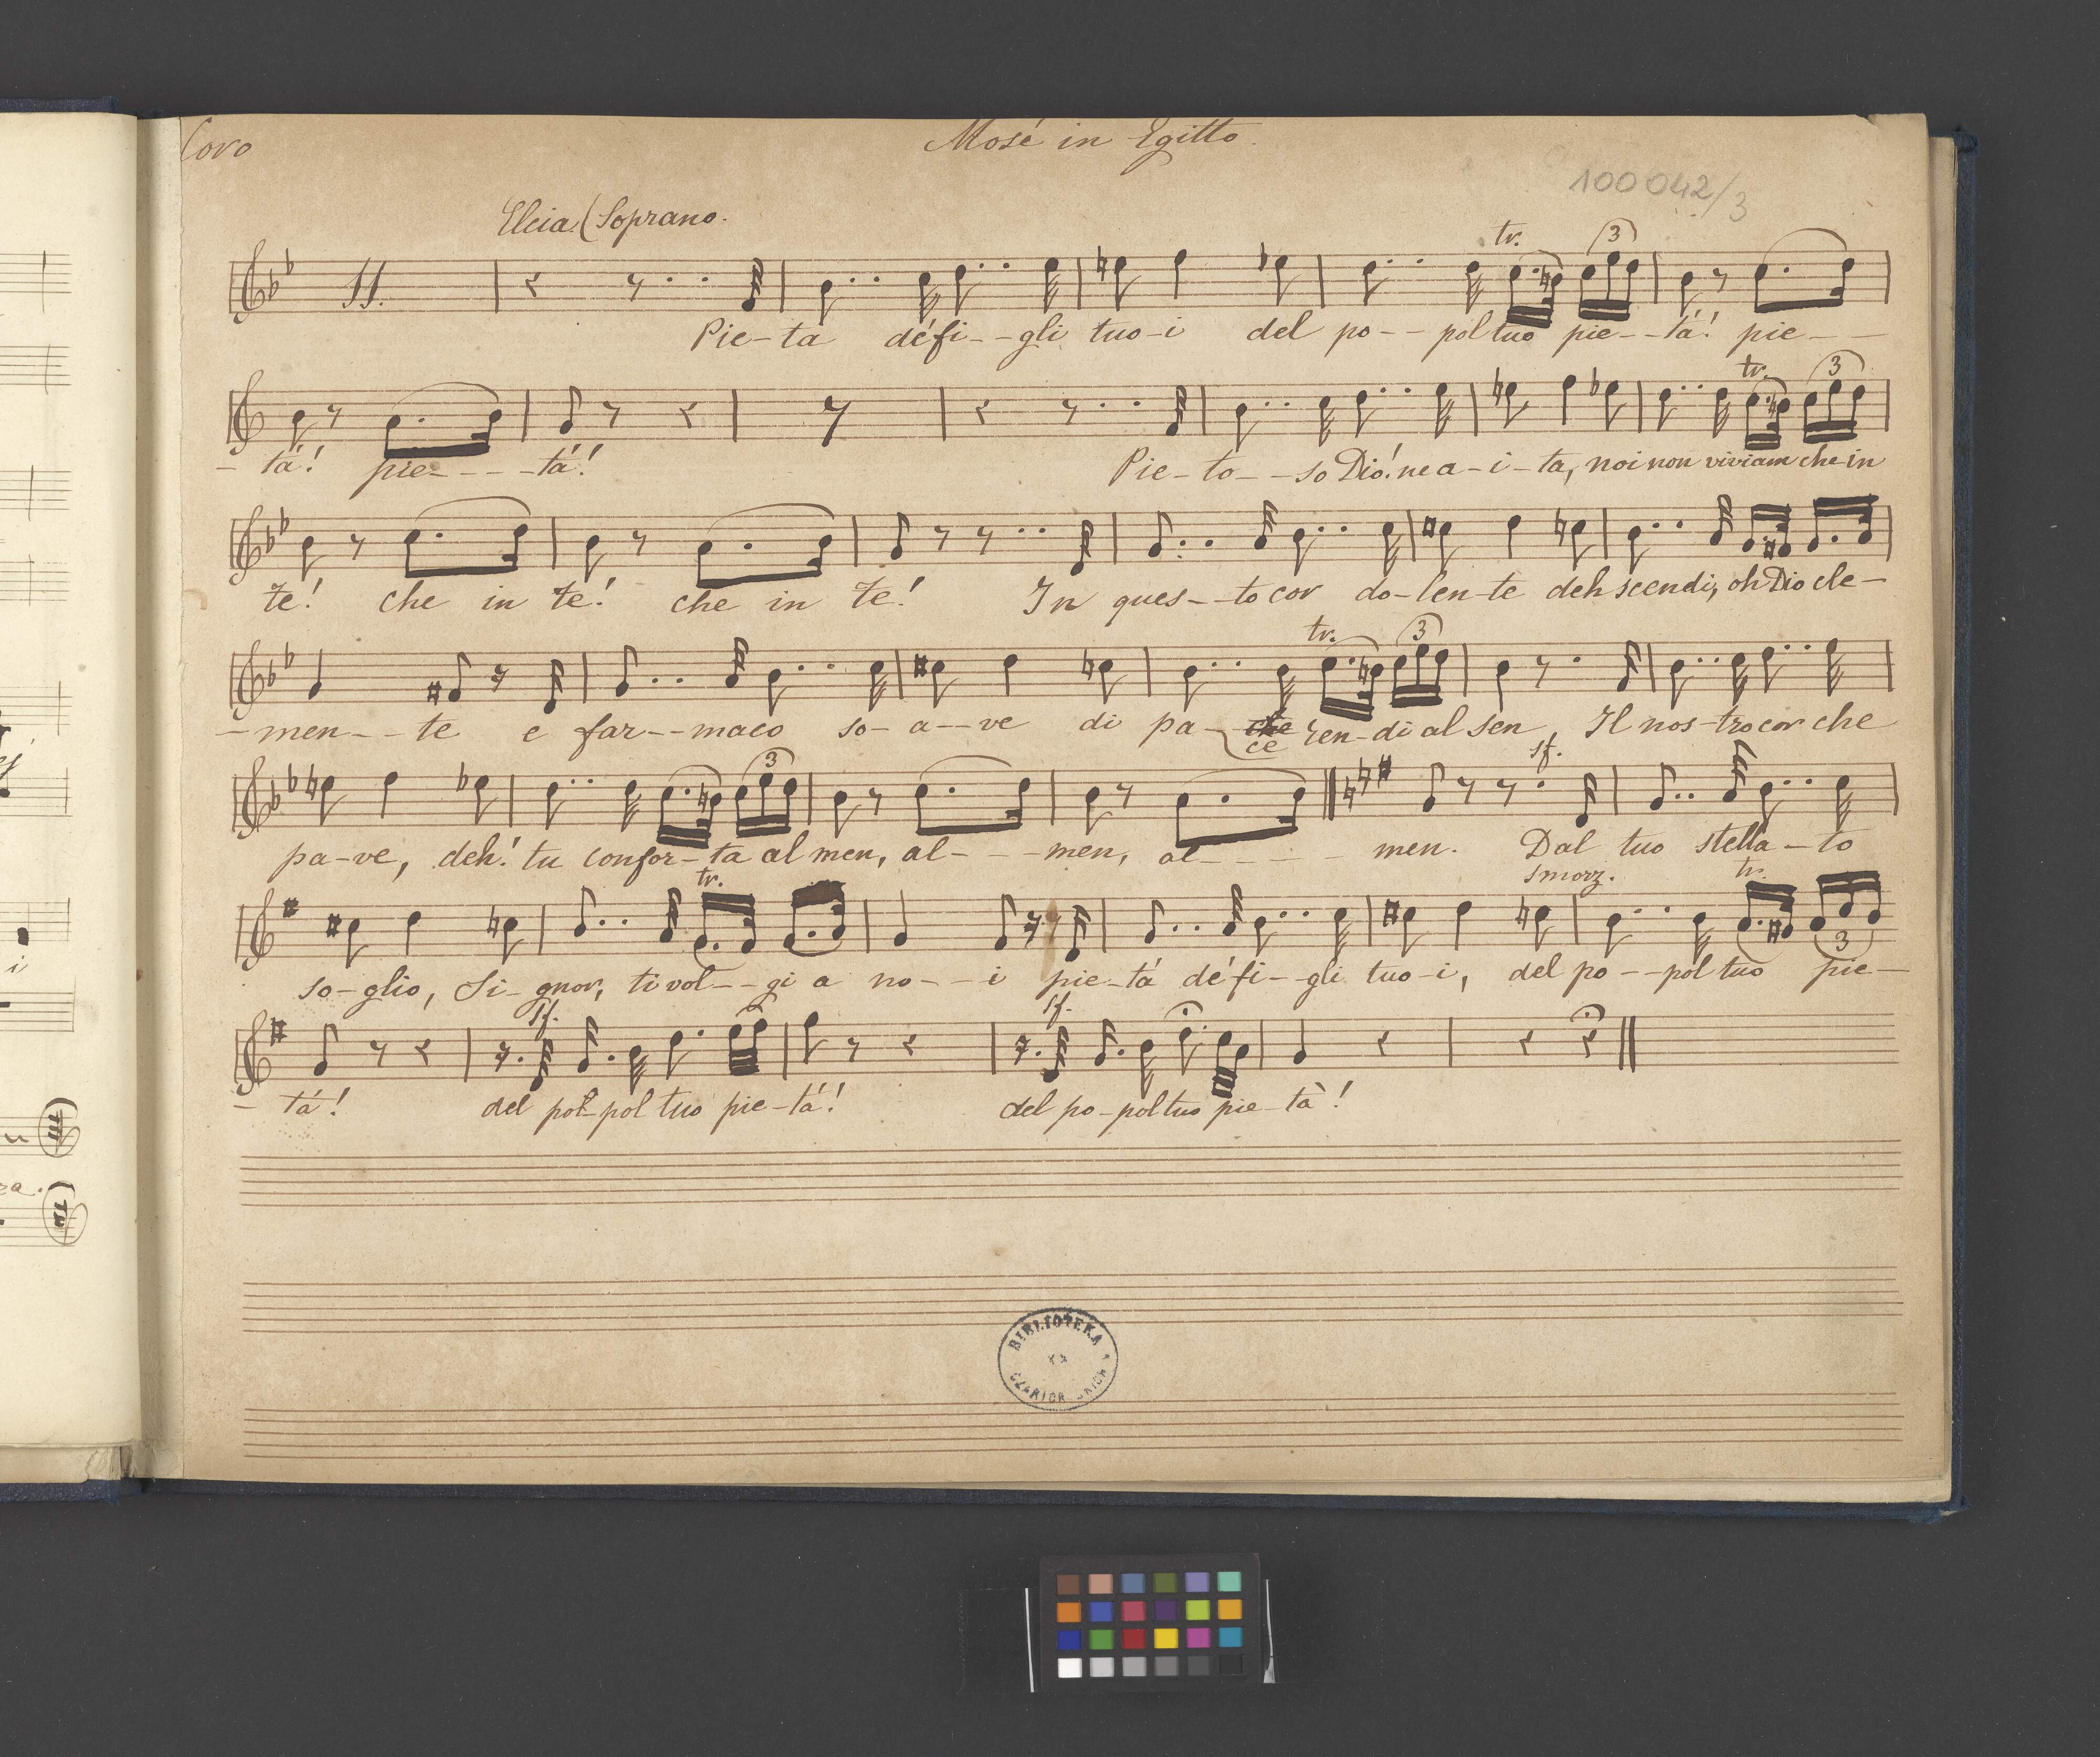 Coro
Mosé in Egitto.
100042/3
Elcia. (Soprano.
tr. 3
Pie-ta dé fi--gli tuo-i del po--pol tuo pie--tá! pie--
tr. 3
-tá! pie----tá! Pie-to--so Dió! ne a-i-ta, noi non viviam che in
te! che in te! che in te! In ques--to cor do-len-te deh scendi, oh Dio cle-
tr. 3
-men--te e far--maco so-a--ve di pa- che ren-di al sen, Il nos-tro cor che
ce
3 sf.
pa-ve, deh! tu confor-ta al men, al---men, al---- men. Dal tuo stella-to
tr. smorz. tr.
so-glio, Si-gnor, ti vol--gi a no--i pie-tá dé fi--gli tuo-i, del po--pol tuo pie-
3
sf. sf.
-tá! del pol-pol tuo pie-tá! del po-pol tuo pie-tà!
BIBLIOTEKA
XX
i